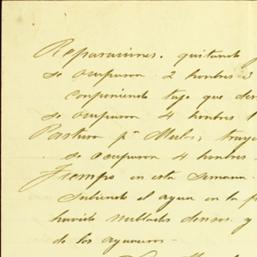 Reparaciones. quitando
se ocuparon 2 hombres 3
componiendo tajo que
se ocuparon 4 hombres
Pastura pª Mulas,
se ocuparon 4 hombres.
Tiempo en esta Semana.
Subiendo el agua en la
havido nublados densos y
de los aguaceros